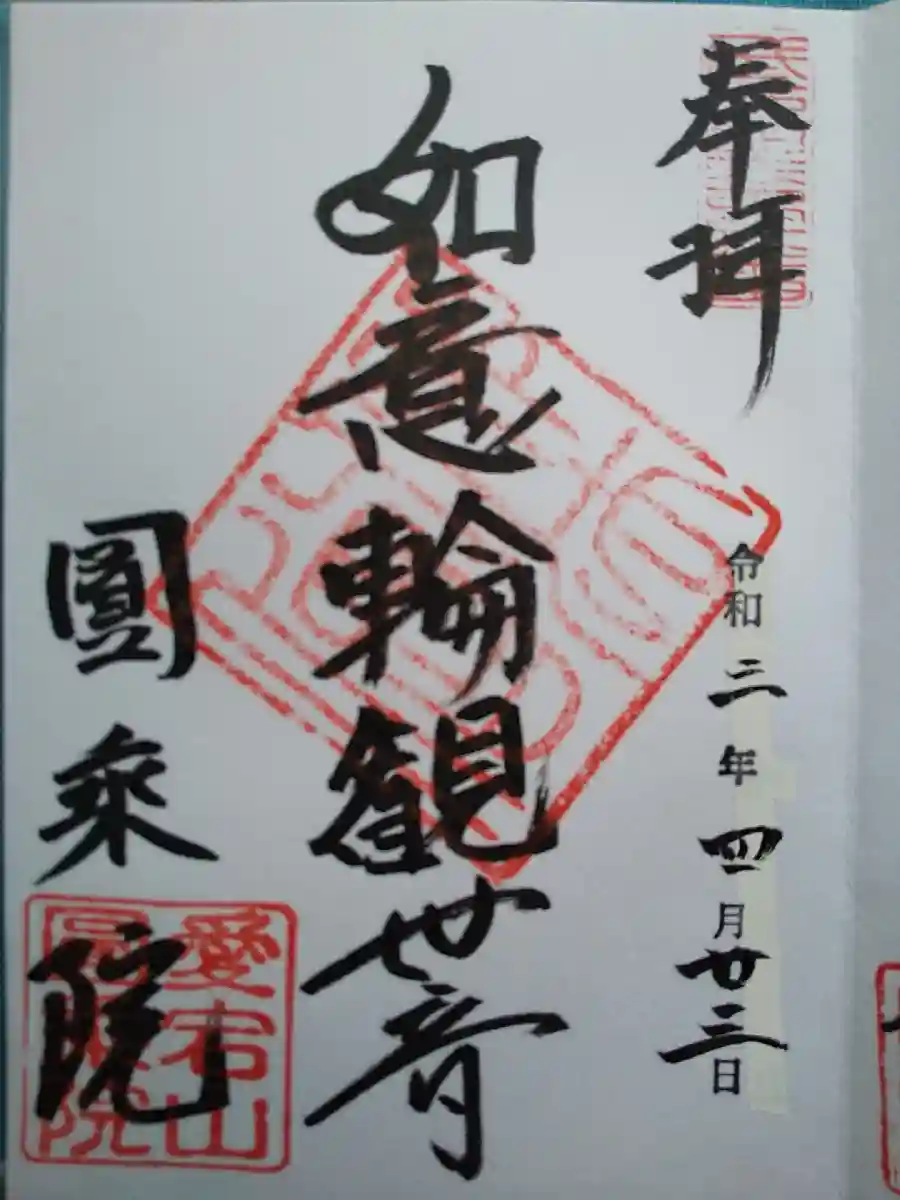 奉拝
令和三年四月廿三日
如意輪観世音
圓乘院
愛宕山